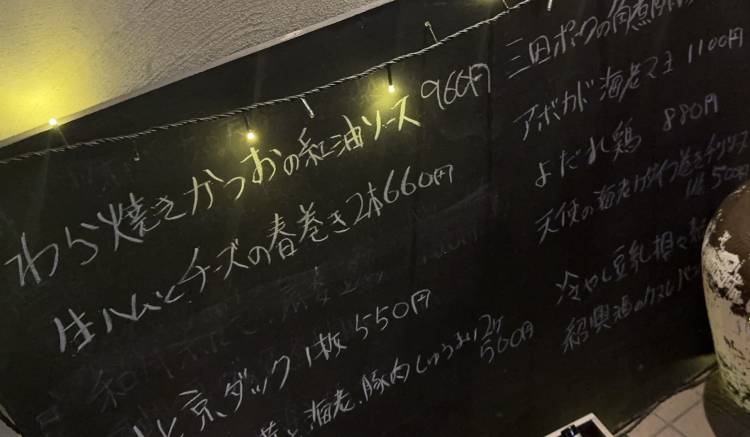 わら焼きかつおの紅油ソース 960円
生ハムとチーズの春巻き2本660円
北京ダック 1枚 550円
と海老、豚肉しゅうまい2ケ
560円
三田ポークの角煮
アボカド海老マヨ 1100円
よだれ鶏 880円
天使の海老
1本 500円
冷やし豆乳担々
紹興酒の